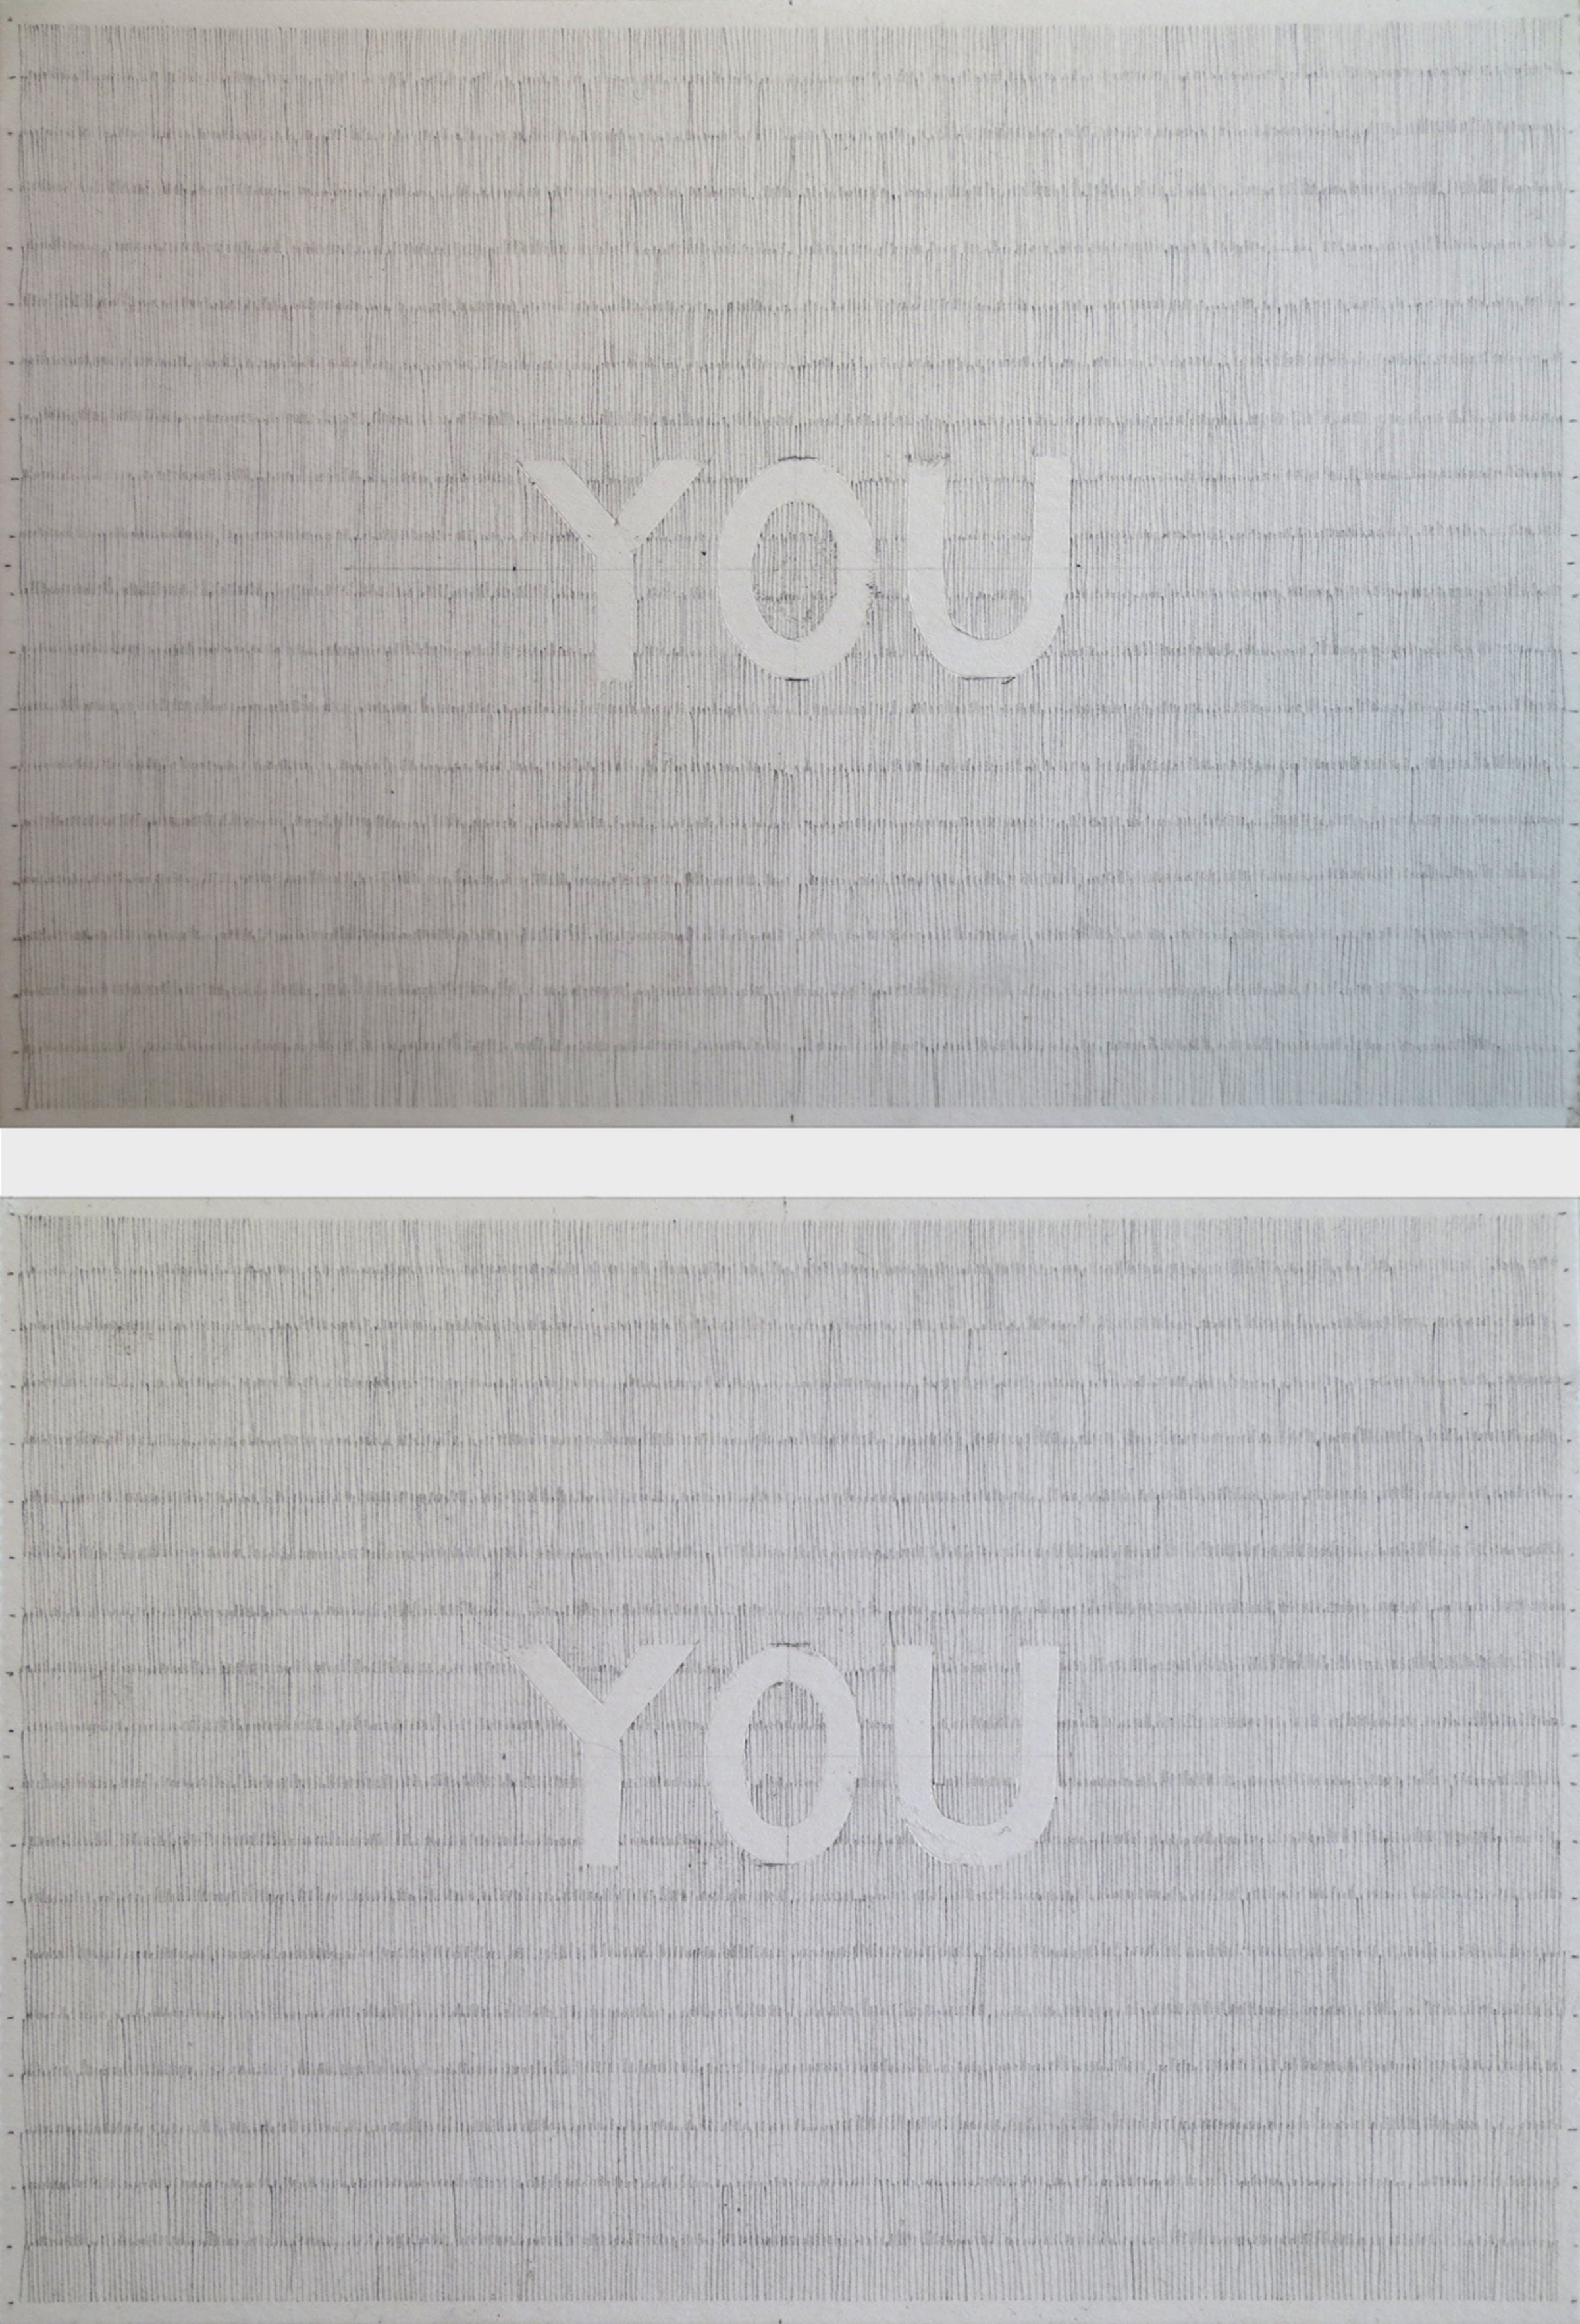 YOU
YOU